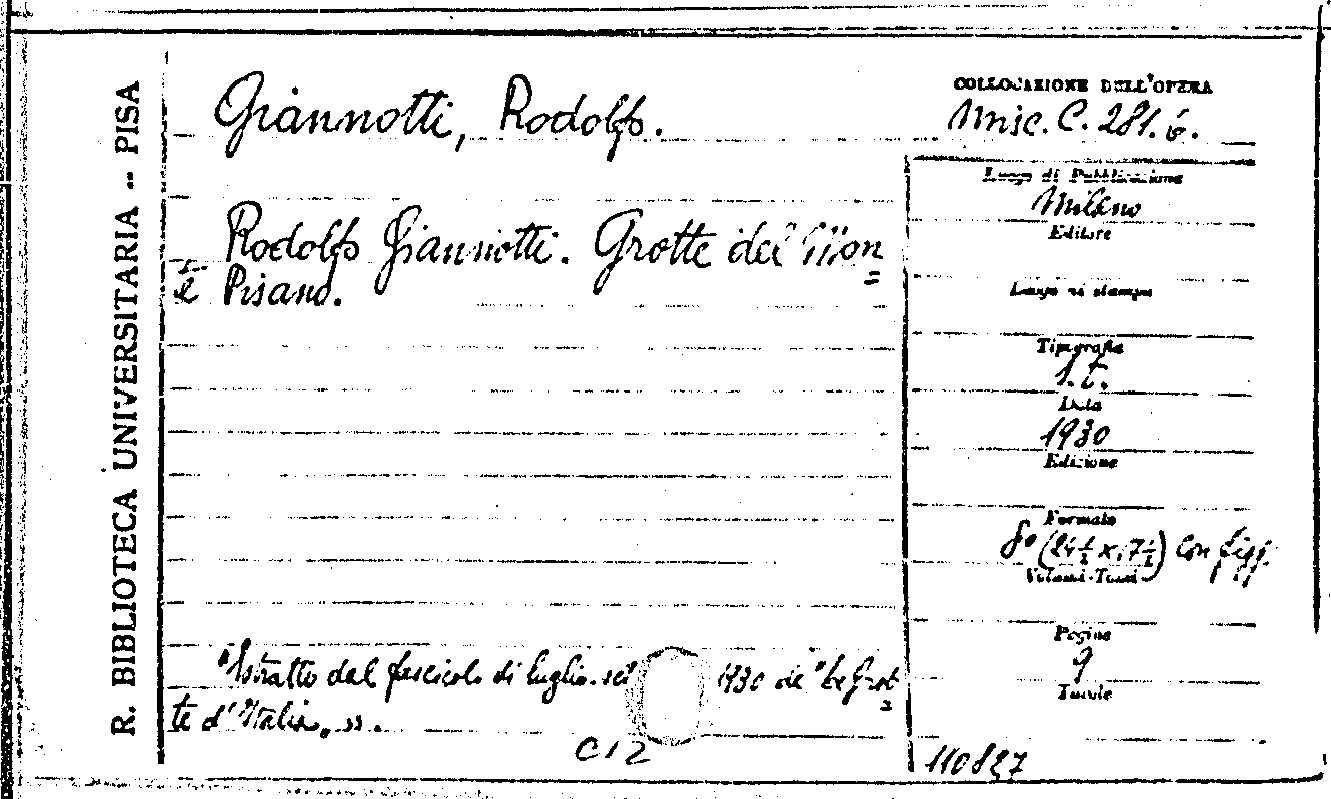 R. BIBLIOTECA UNIVERSITARIA -- PISA
Giannotti, Rodolfo.
COLLOCAZIONE DELL'OPERA
Misc. C. 281. 6.
Rodolfo Giannotti. Grotte del Mon=
te Pisano.
Luogo di Pubblicazione
Milano
Editore
Luogo di stampa
Tipografia
s.t.
Data
1930
Edizione
Formato
8° (24½ x 17½) con figg.
Volumi-Tomi
Pagine
9
Tavole
"Estratto dal fascicolo di luglio-set 1930 de "Le Grot=
te d'Italia„ ».
C12
110827